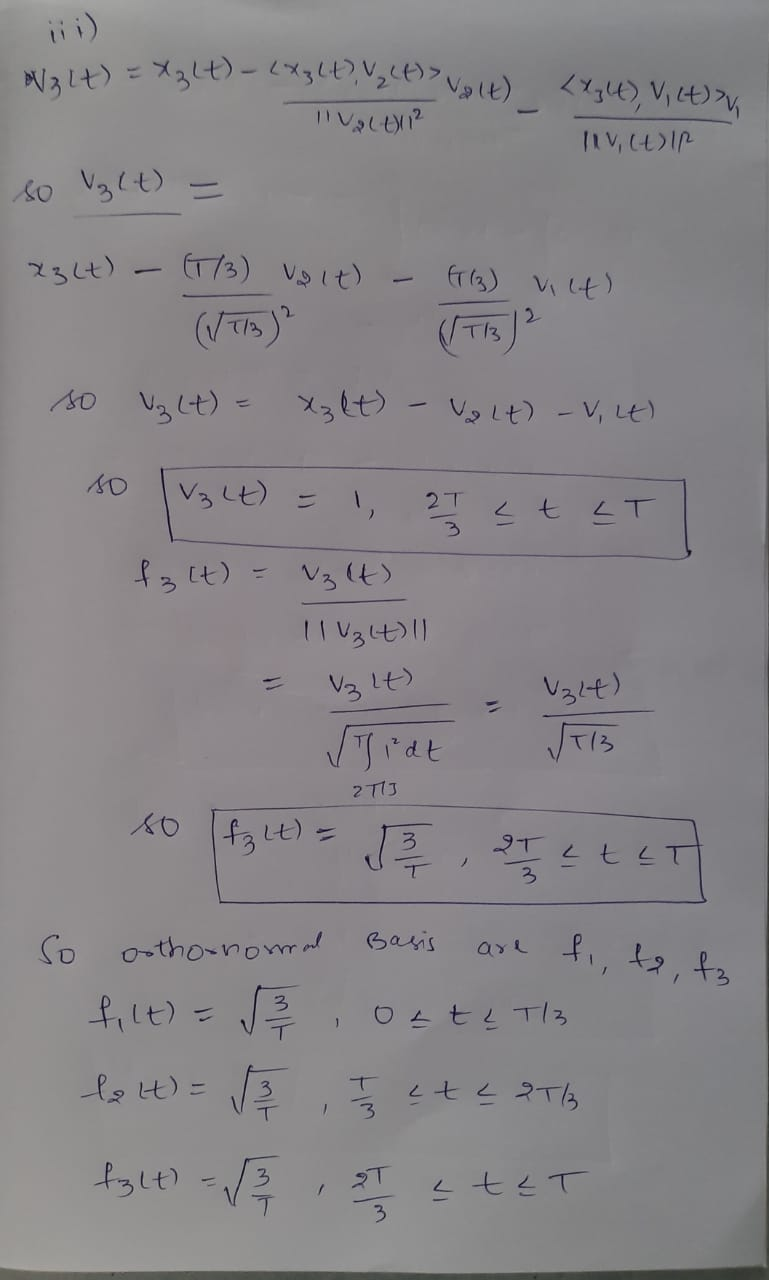 iii)
V₃(t) = x₃(t) - <x₃(t), V₂(t)>/||V₂(t)||² V₂(t) - <x₃(t), V₁(t)>V₁/||V₁(t)||²
so V₃(t) =
x₃(t) - (T/3)/(√T/3)² V₂(t) - (T/3)/(√T/3)² V₁(t)
so V₃(t) = x₃(t) - V₂(t) - V₁(t)
so V₃(t) = 1, 2T/3 ≤ t ≤ T
f₃(t) = V₃(t)/||V₃(t)||
= V₃(t)/√(∫_{2T/3}^{T} 1² dt) = V₃(t)/√T/3
so f₃(t) = √(3/T), 2T/3 ≤ t ≤ T
So orthonormal Basis are f₁, f₂, f₃
f₁(t) = √(3/T), 0 ≤ t ≤ T/3
f₂(t) = √(3/T), T/3 ≤ t ≤ 2T/3
f₃(t) = √(3/T), 2T/3 ≤ t ≤ T